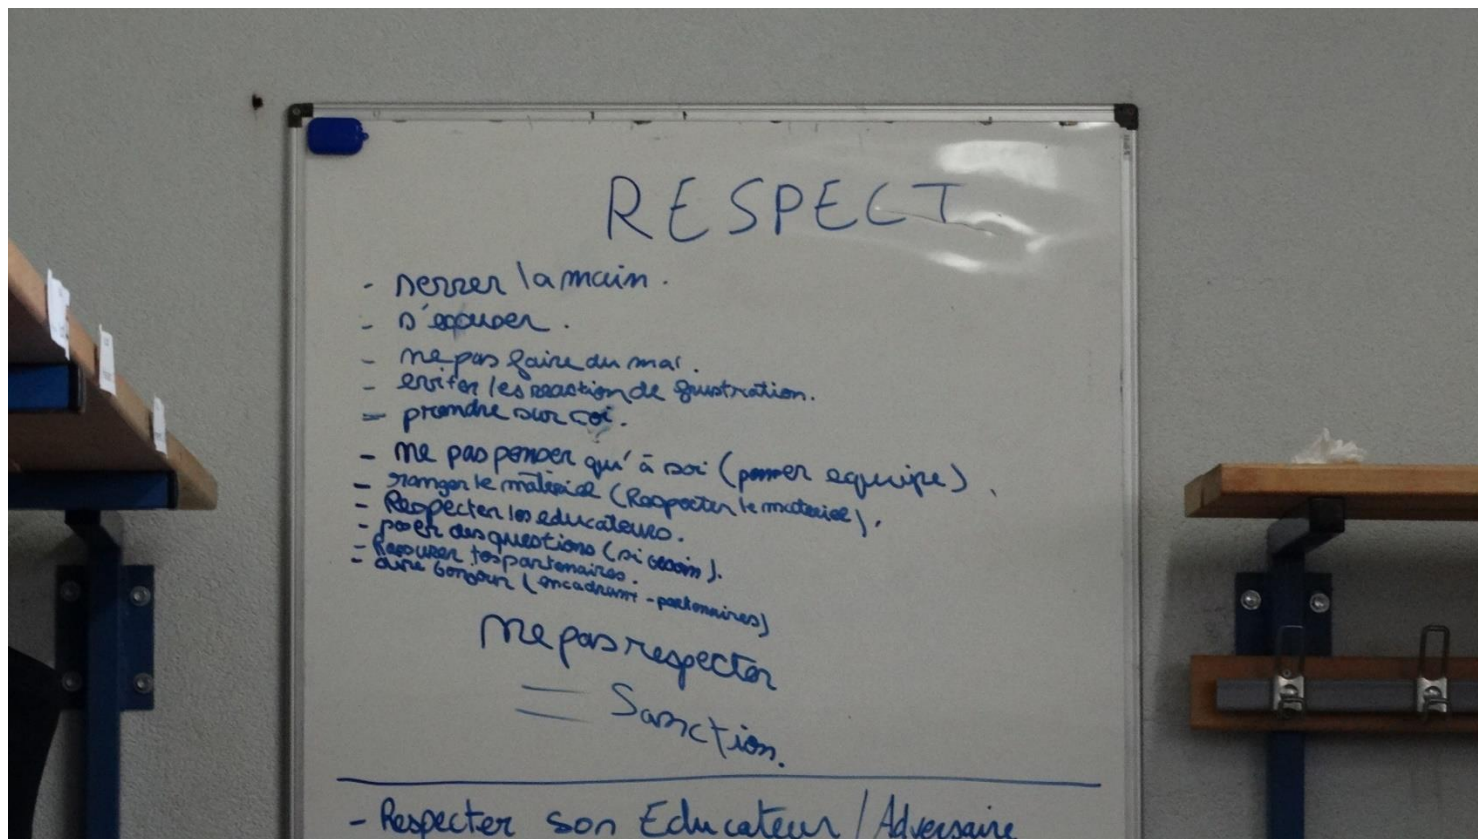 RESPECT
- serrer la main.
- s'excuser.
- ne pas faire du mal.
- eviter les reaction de frustration.
- prendre sur soi.
- ne pas penser qu'à soi (penser equipe).
- ranger le matériel (Respecter le materiel).
- Respecter les educateurs.
- poser des questions (si besoin).
- Rassurer tes partenaires.
- dire bonjour (encadrant - partenaires)
Ne pas respecter
= Sanction.
- Respecter son Educateur / Adversaire